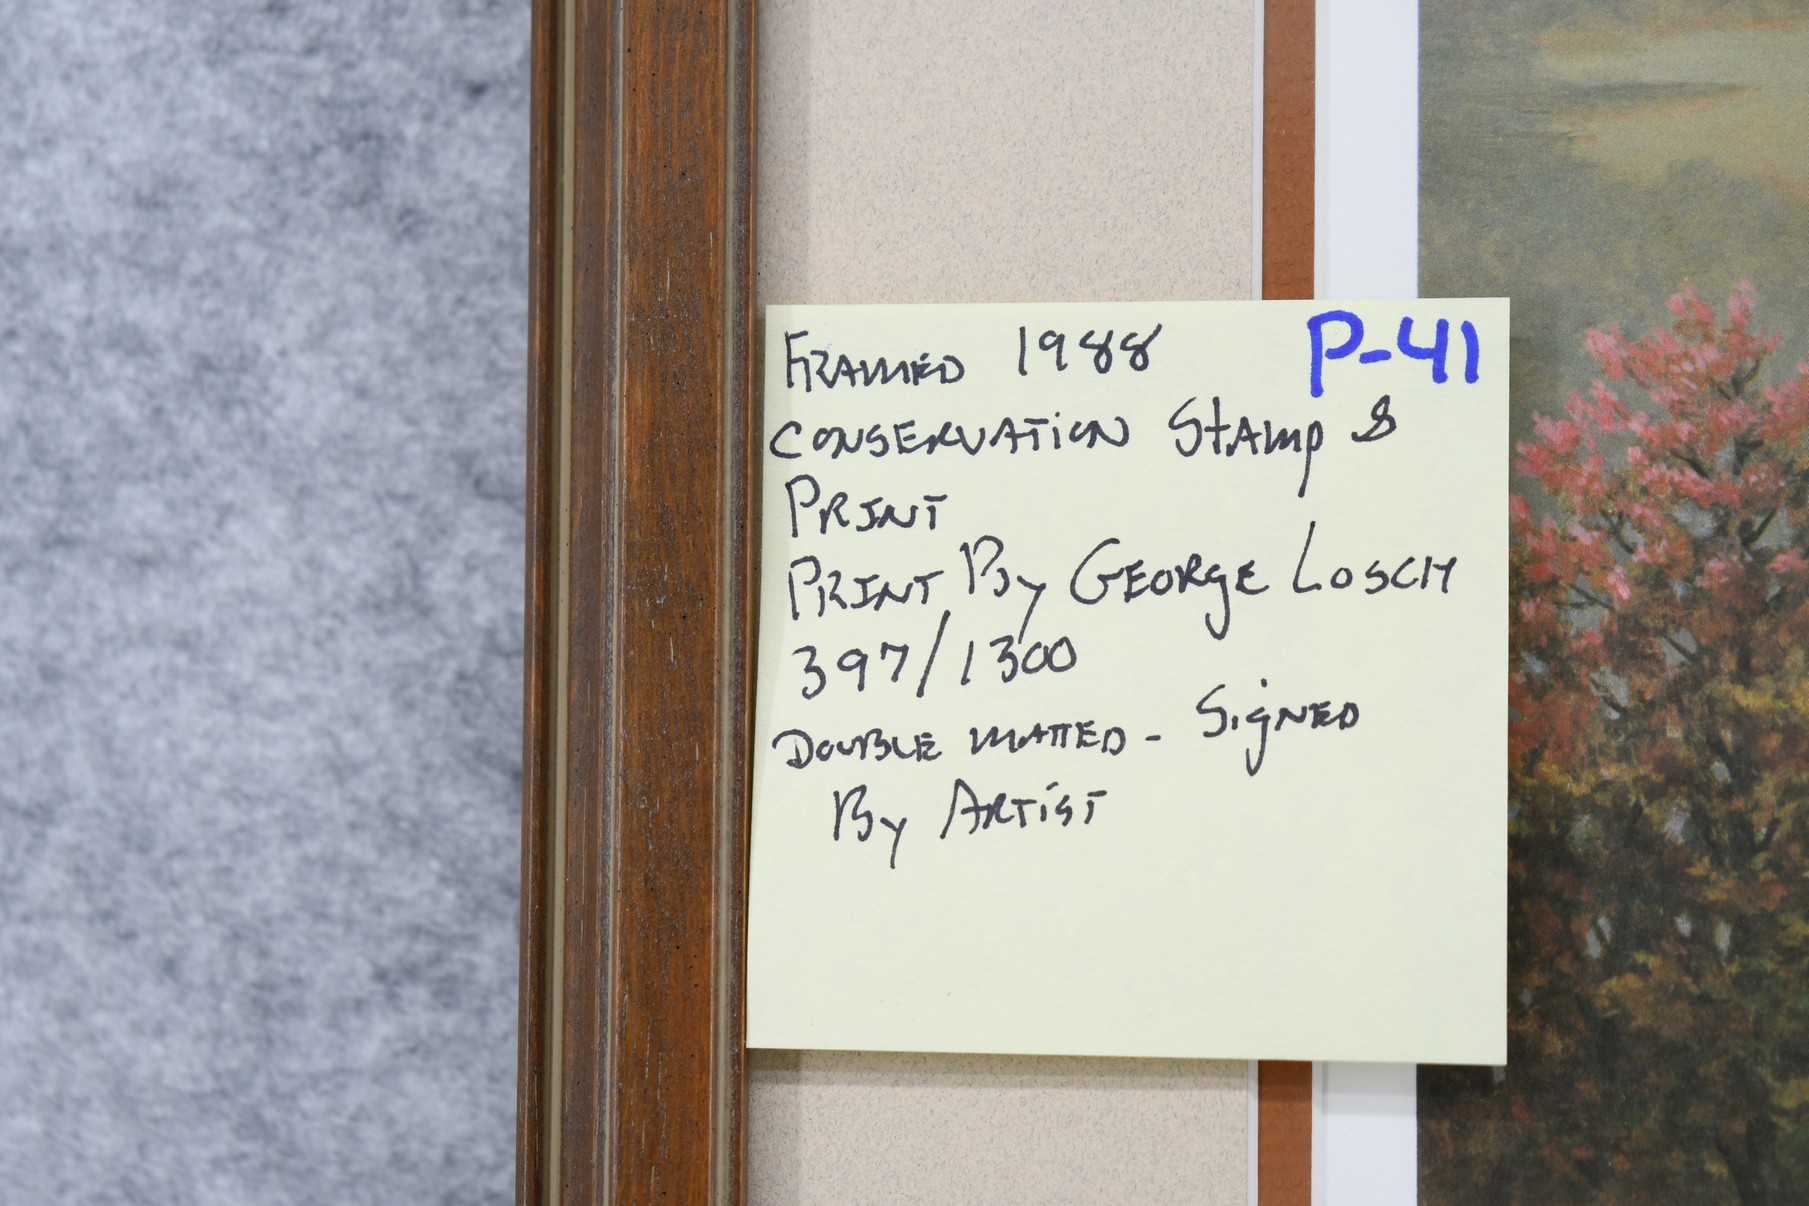 FRAMED 1988 P-41
CONSERVATION STAMP &
PRINT
PRINT By GEORGE LOSCH
397/1300
DOUBLE MATTED - SIGNED
By ARTIST